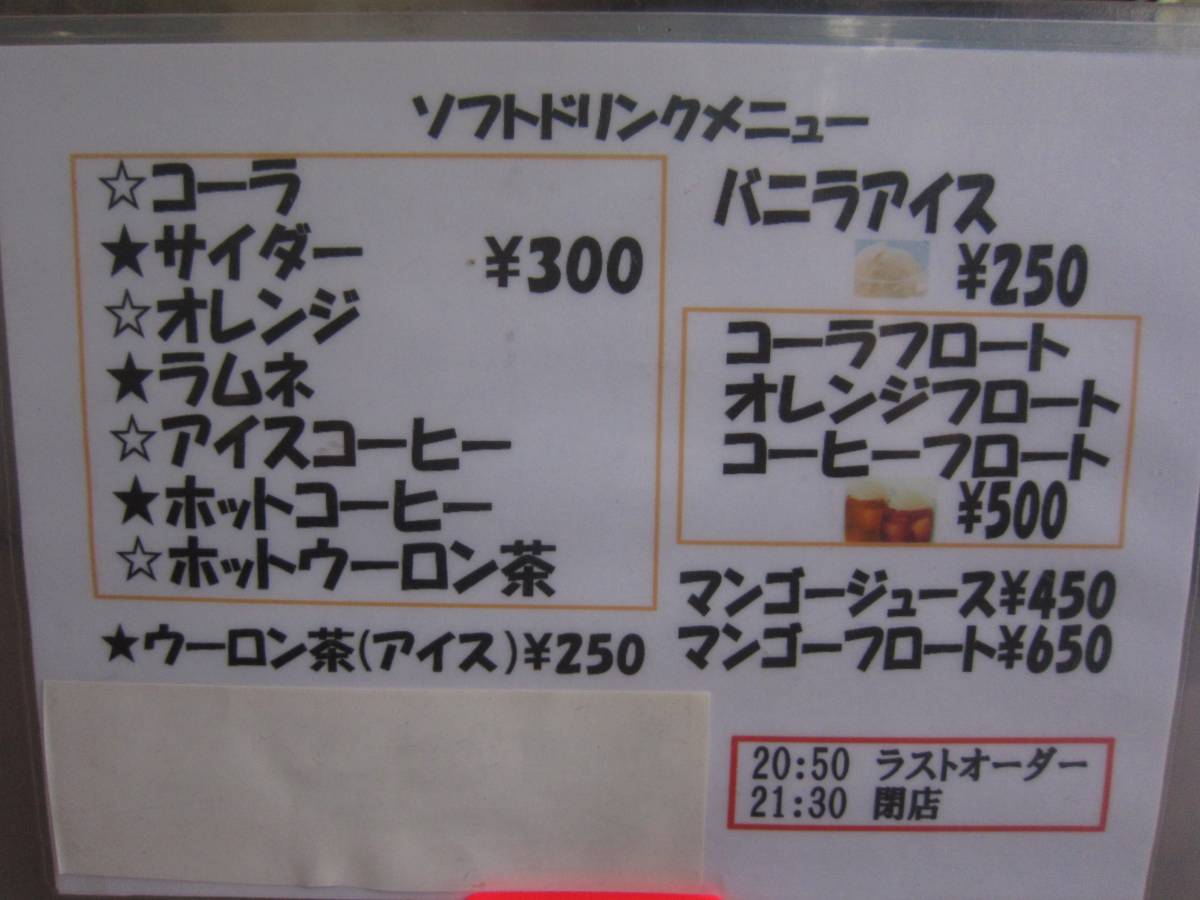 ソフトドリンクメニュー
☆コーラ
★サイダー ¥300
☆オレンジ
★ラムネ
☆アイスコーヒー
★ホットコーヒー
☆ホットウーロン茶
★ウーロン茶(アイス)¥250
バニラアイス
¥250
コーラフロート
オレンジフロート
コーヒーフロート
¥500
マンゴージュース¥450
マンゴーフロート¥650
20:50 ラストオーダー
21:30 閉店